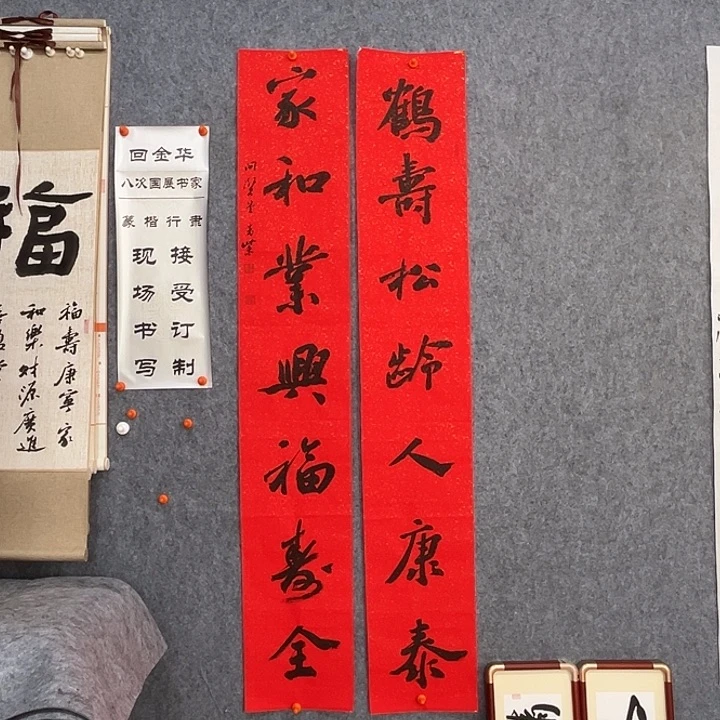 鶴壽松齡人康泰
家和業興福寿全
回金华
八次国展书家
篆楷行隶
接受订制
现场书写
福
福壽康寧家
和樂財源廣進